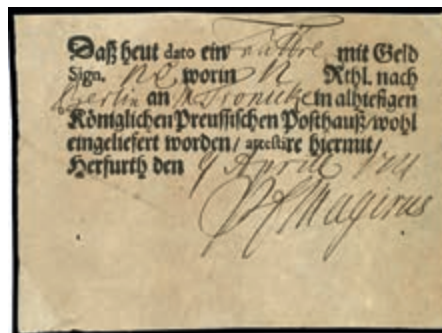 Daß heut dato ein mit Geld
Sign. worin Rthl. nach
Berlin an in alhiesigen
Königlichen Preussischen Posthauß/wohl
eingeliefert worden/ attestire hiermit/
Herfurth den 9 Aprill
Magirus